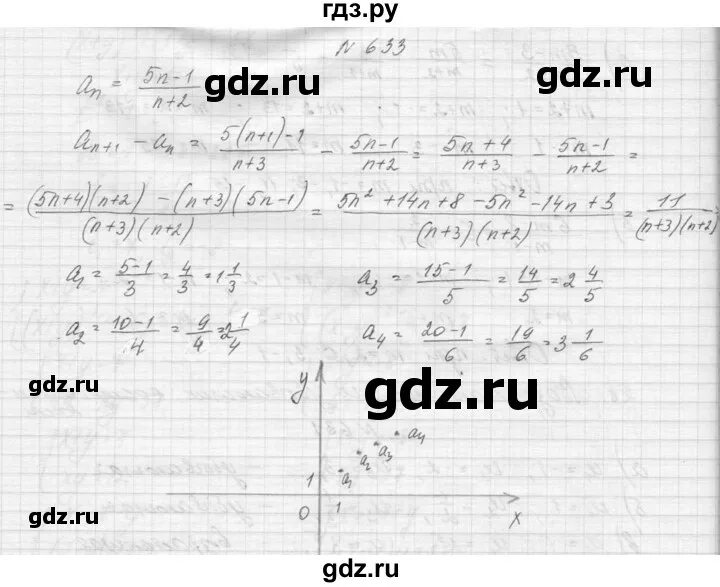 гдз.ру
N 633
aₙ = (5n-1)/(n+2)
gdz.ru gdz.ru
aₙ₊₁ - aₙ = (5(n+1)-1)/(n+3) - (5n-1)/(n+2) = (5n+4)/(n+3) - (5n-1)/(n+2) =
= ((5n+4)(n+2) - (n+3)(5n-1))/((n+3)(n+2)) = (5n²+14n+8-5n²-14n+3)/((n+3)(n+2)) = 11/((n+3)(n+2))
a₁ = (5-1)/3 = 4/3 = 1 1/3 a₃ = (15-1)/5 = 14/5 = 2 4/5
a₂ = (10-1)/4 = 9/4 = 2 1/4 a₄ = (20-1)/6 = 19/6 = 3 1/6
gdz.ru
y
gdz.ru
a₄
a₃
a₂
a₁
1
0 1 x
gdz.ru
gdz.ru
gdz.ru